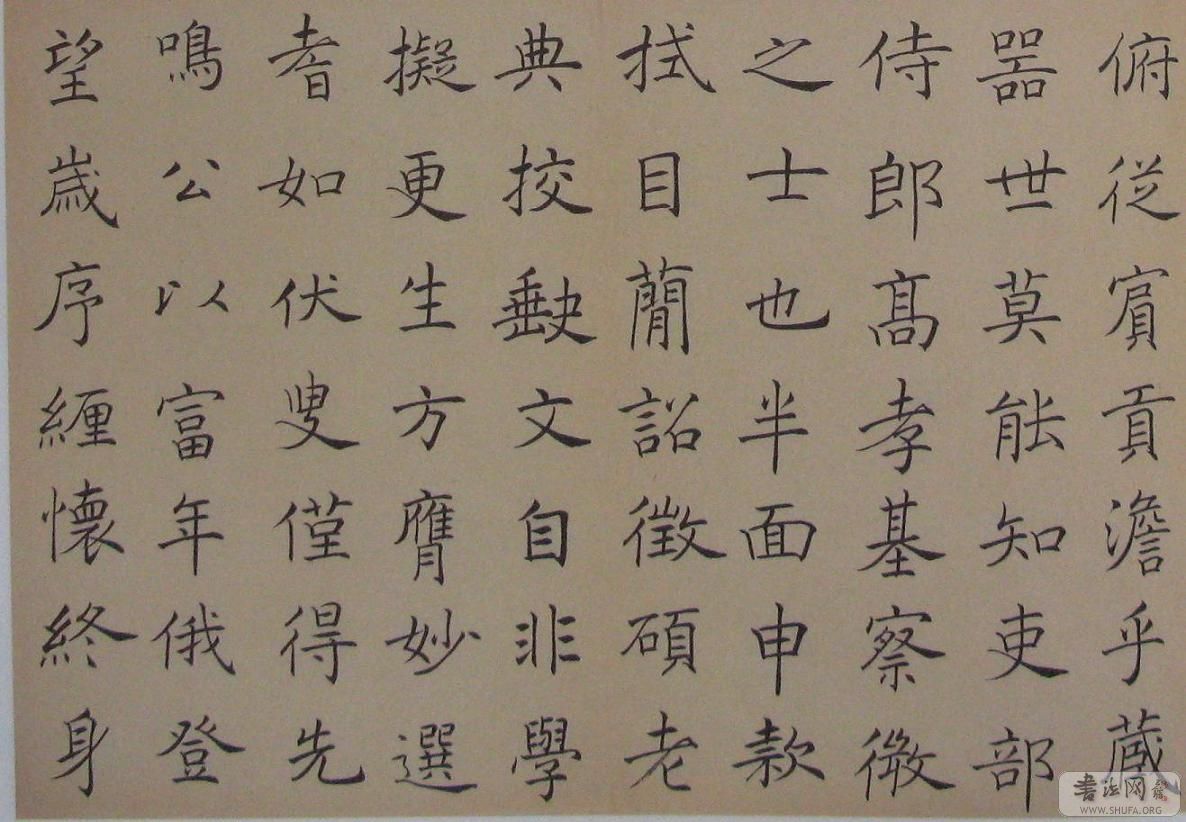 俯從賔貢澹乎藏
器世莫能知吏部
侍郎髙孝基察徴
之士也半面申款
拭目蕳詔徴碩老
典挍𡙇文自非學
擬更生方膺妙選
耆如伏叟僅得先
鳴公以富年俄登
望嵗序纒懷終身
書法网
WWW.SHUFA.ORG